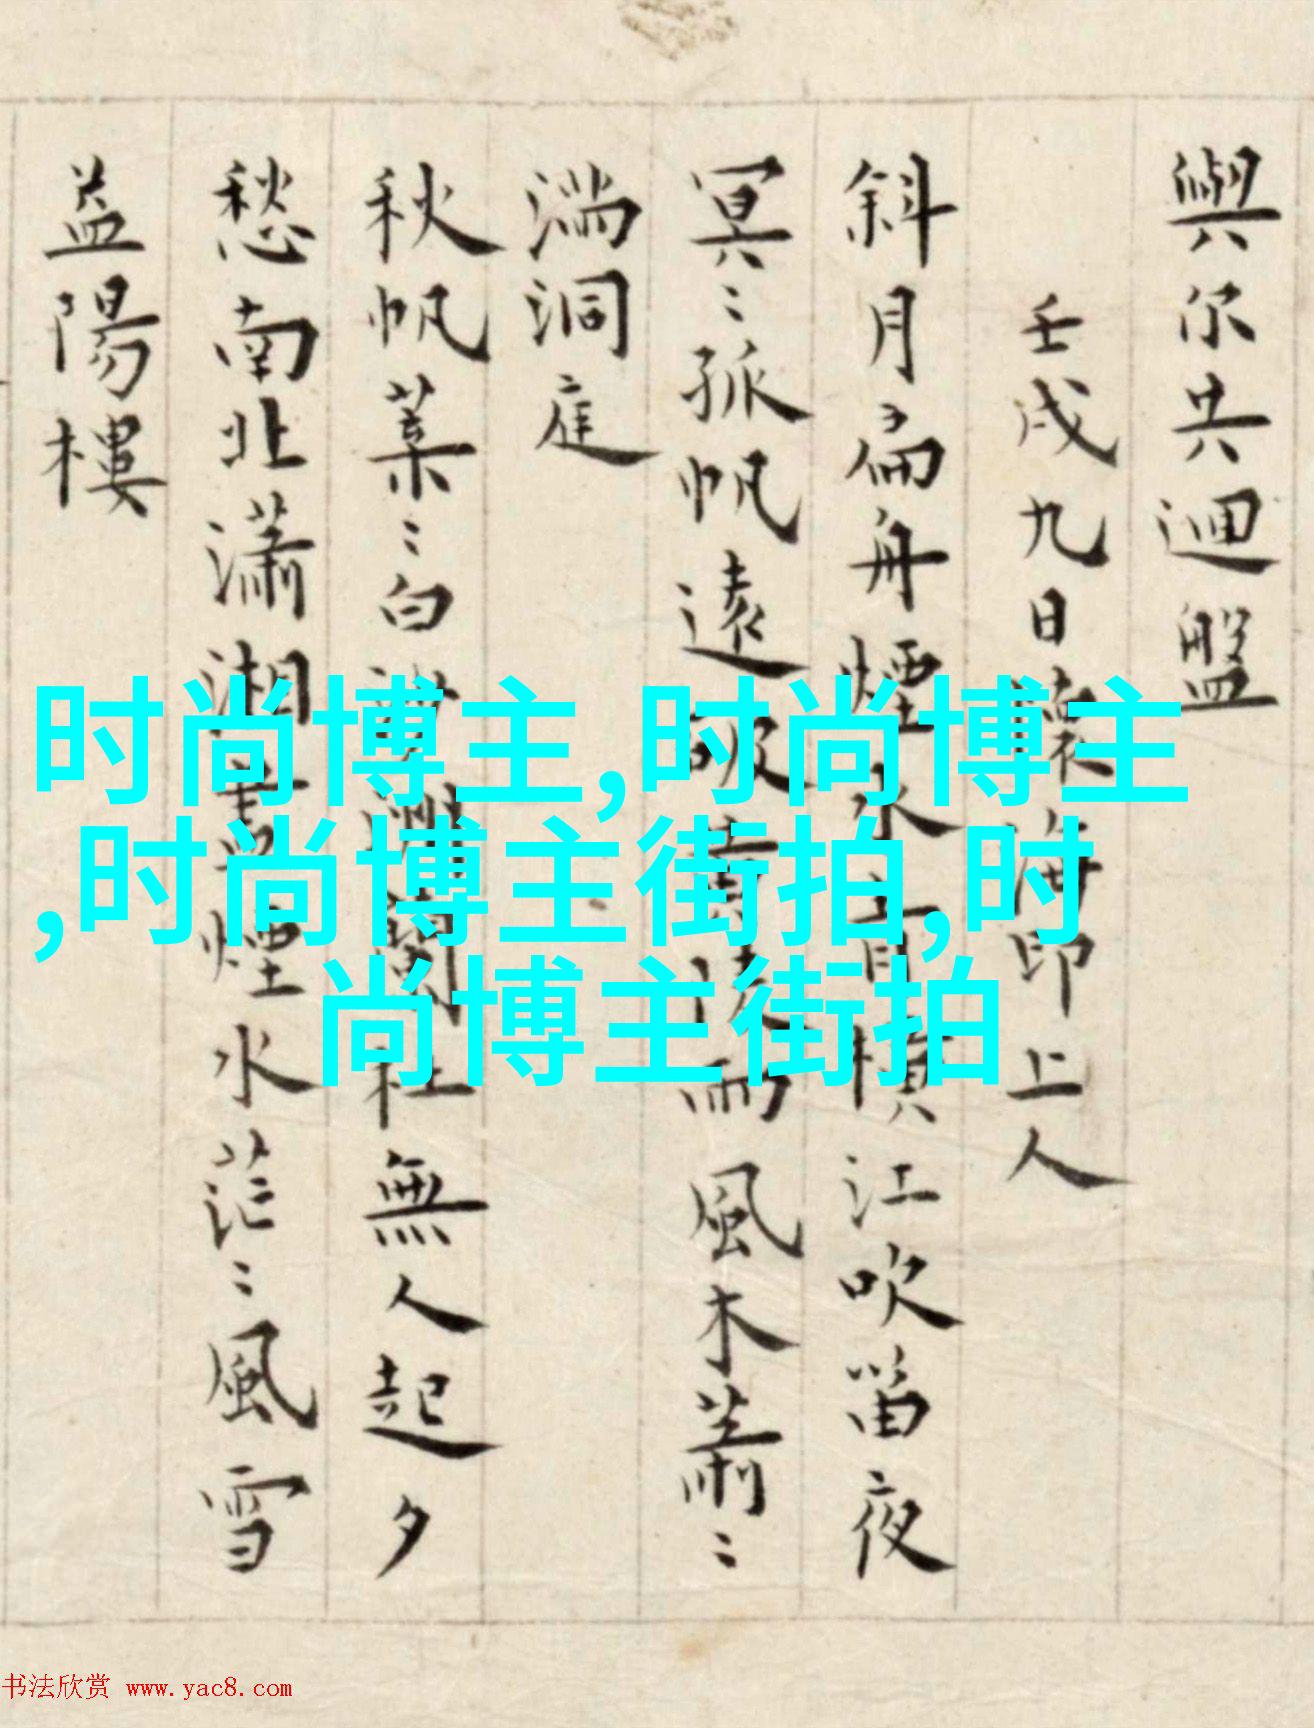 與尔共迴盤
壬戌九日
海印上人
斜月扁舟煙水
横江吹笛夜
冥〻孤帆遠
而風木蕭〻
湍洞庭
秋帆葉〻白
社無人起夕
愁南北瀟湘
煙水茫〻風雪
益陽樓
时尚博主,时尚博主
,时尚博主街拍,时
尚博主街拍
书法欣赏 www.yac8.com